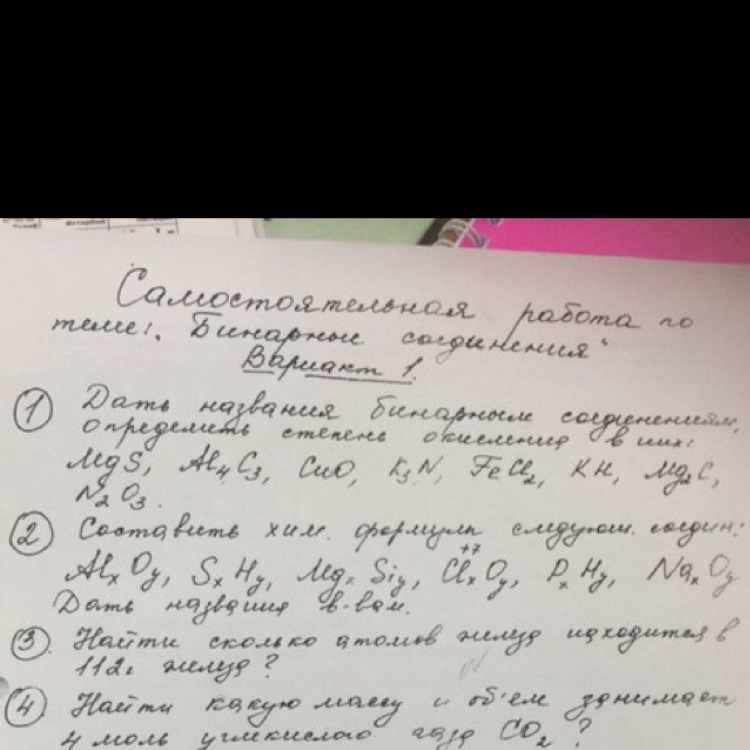 Самостоятельная работа по
теме: „Бинарные соединения“
Вариант 1.
① Дать названия бинарным соединениям,
определить степень окисления в них:
MgS, Al₄C₃, CuO, K₃N, FeCl₂, KH, Mg₂C,
N₂O₃.
② Составить хим. формулы следующ. соедин:
AlₓOᵧ, SₓHᵧ, MgₓSiᵧ, Cl⁺⁷ₓOᵧ, PₓHᵧ, NaₓOᵧ
Дать названия в-вам.
③. Найти сколько атомов железа находится в
112г железа?
④ Найти какую массу и об'ем занимает
4 моль углекислого газа CO₂?